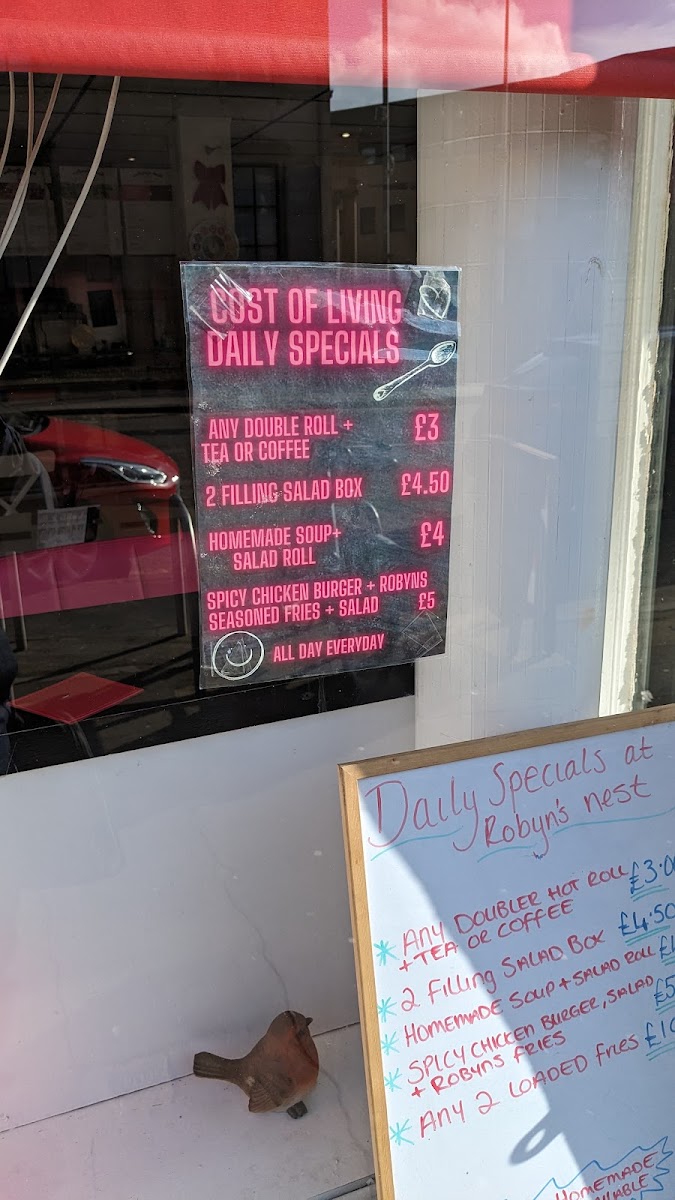 COST OF LIVING
DAILY SPECIALS
ANY DOUBLE ROLL + £3
TEA OR COFFEE
2 FILLING SALAD BOX £4.50
HOMEMADE SOUP+ £4
SALAD ROLL
SPICY CHICKEN BURGER + ROBYNS
SEASONED FRIES + SALAD £5
ALL DAY EVERYDAY
Daily Specials at
Robyn's nest
* ANY DOUBLER HOT ROLL £3.0
+ TEA OR COFFEE
* 2 Filling SALAD BOX £4.50
* HOMEMADE SOUP + SALAD ROLL £
* SPICY CHICKEN BURGER, SALAD £5
+ ROBYNS FRIES
* ANY 2 LOADED Fries £1
HOMEMADE